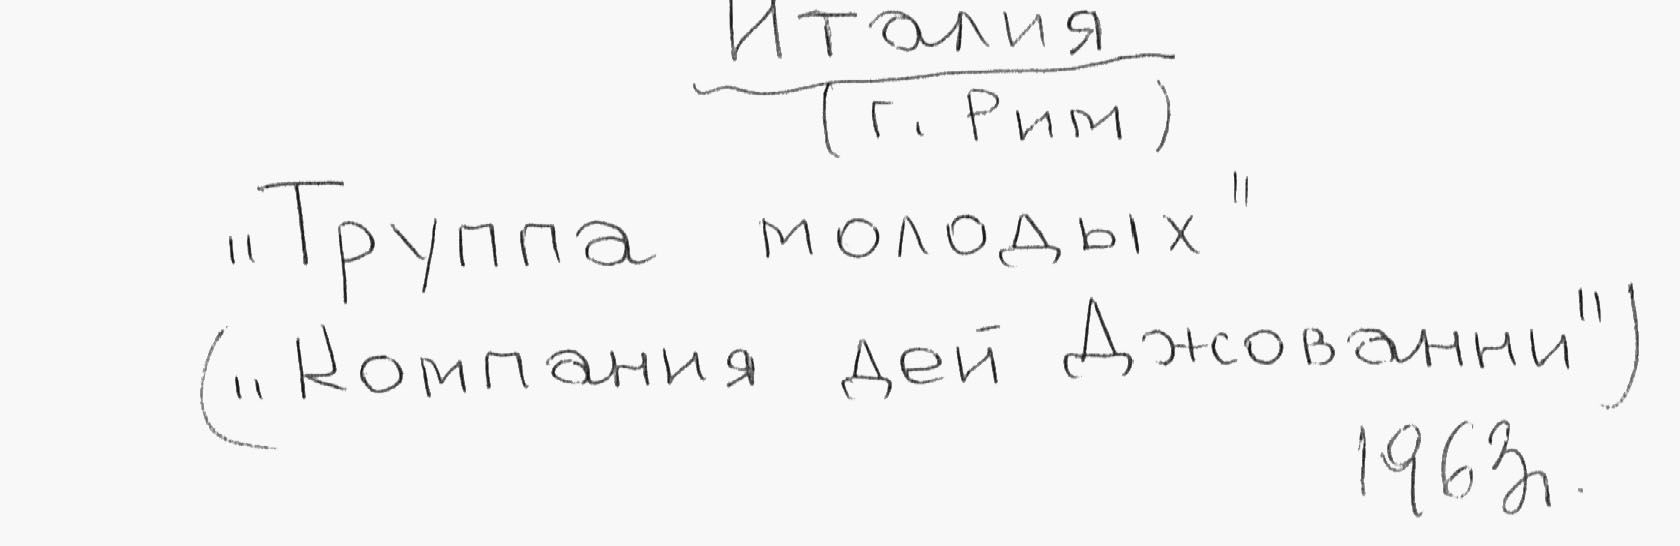 Италия
(г. Рим)
"Труппа молодых"
("Компания дей Джованни")
1963г.